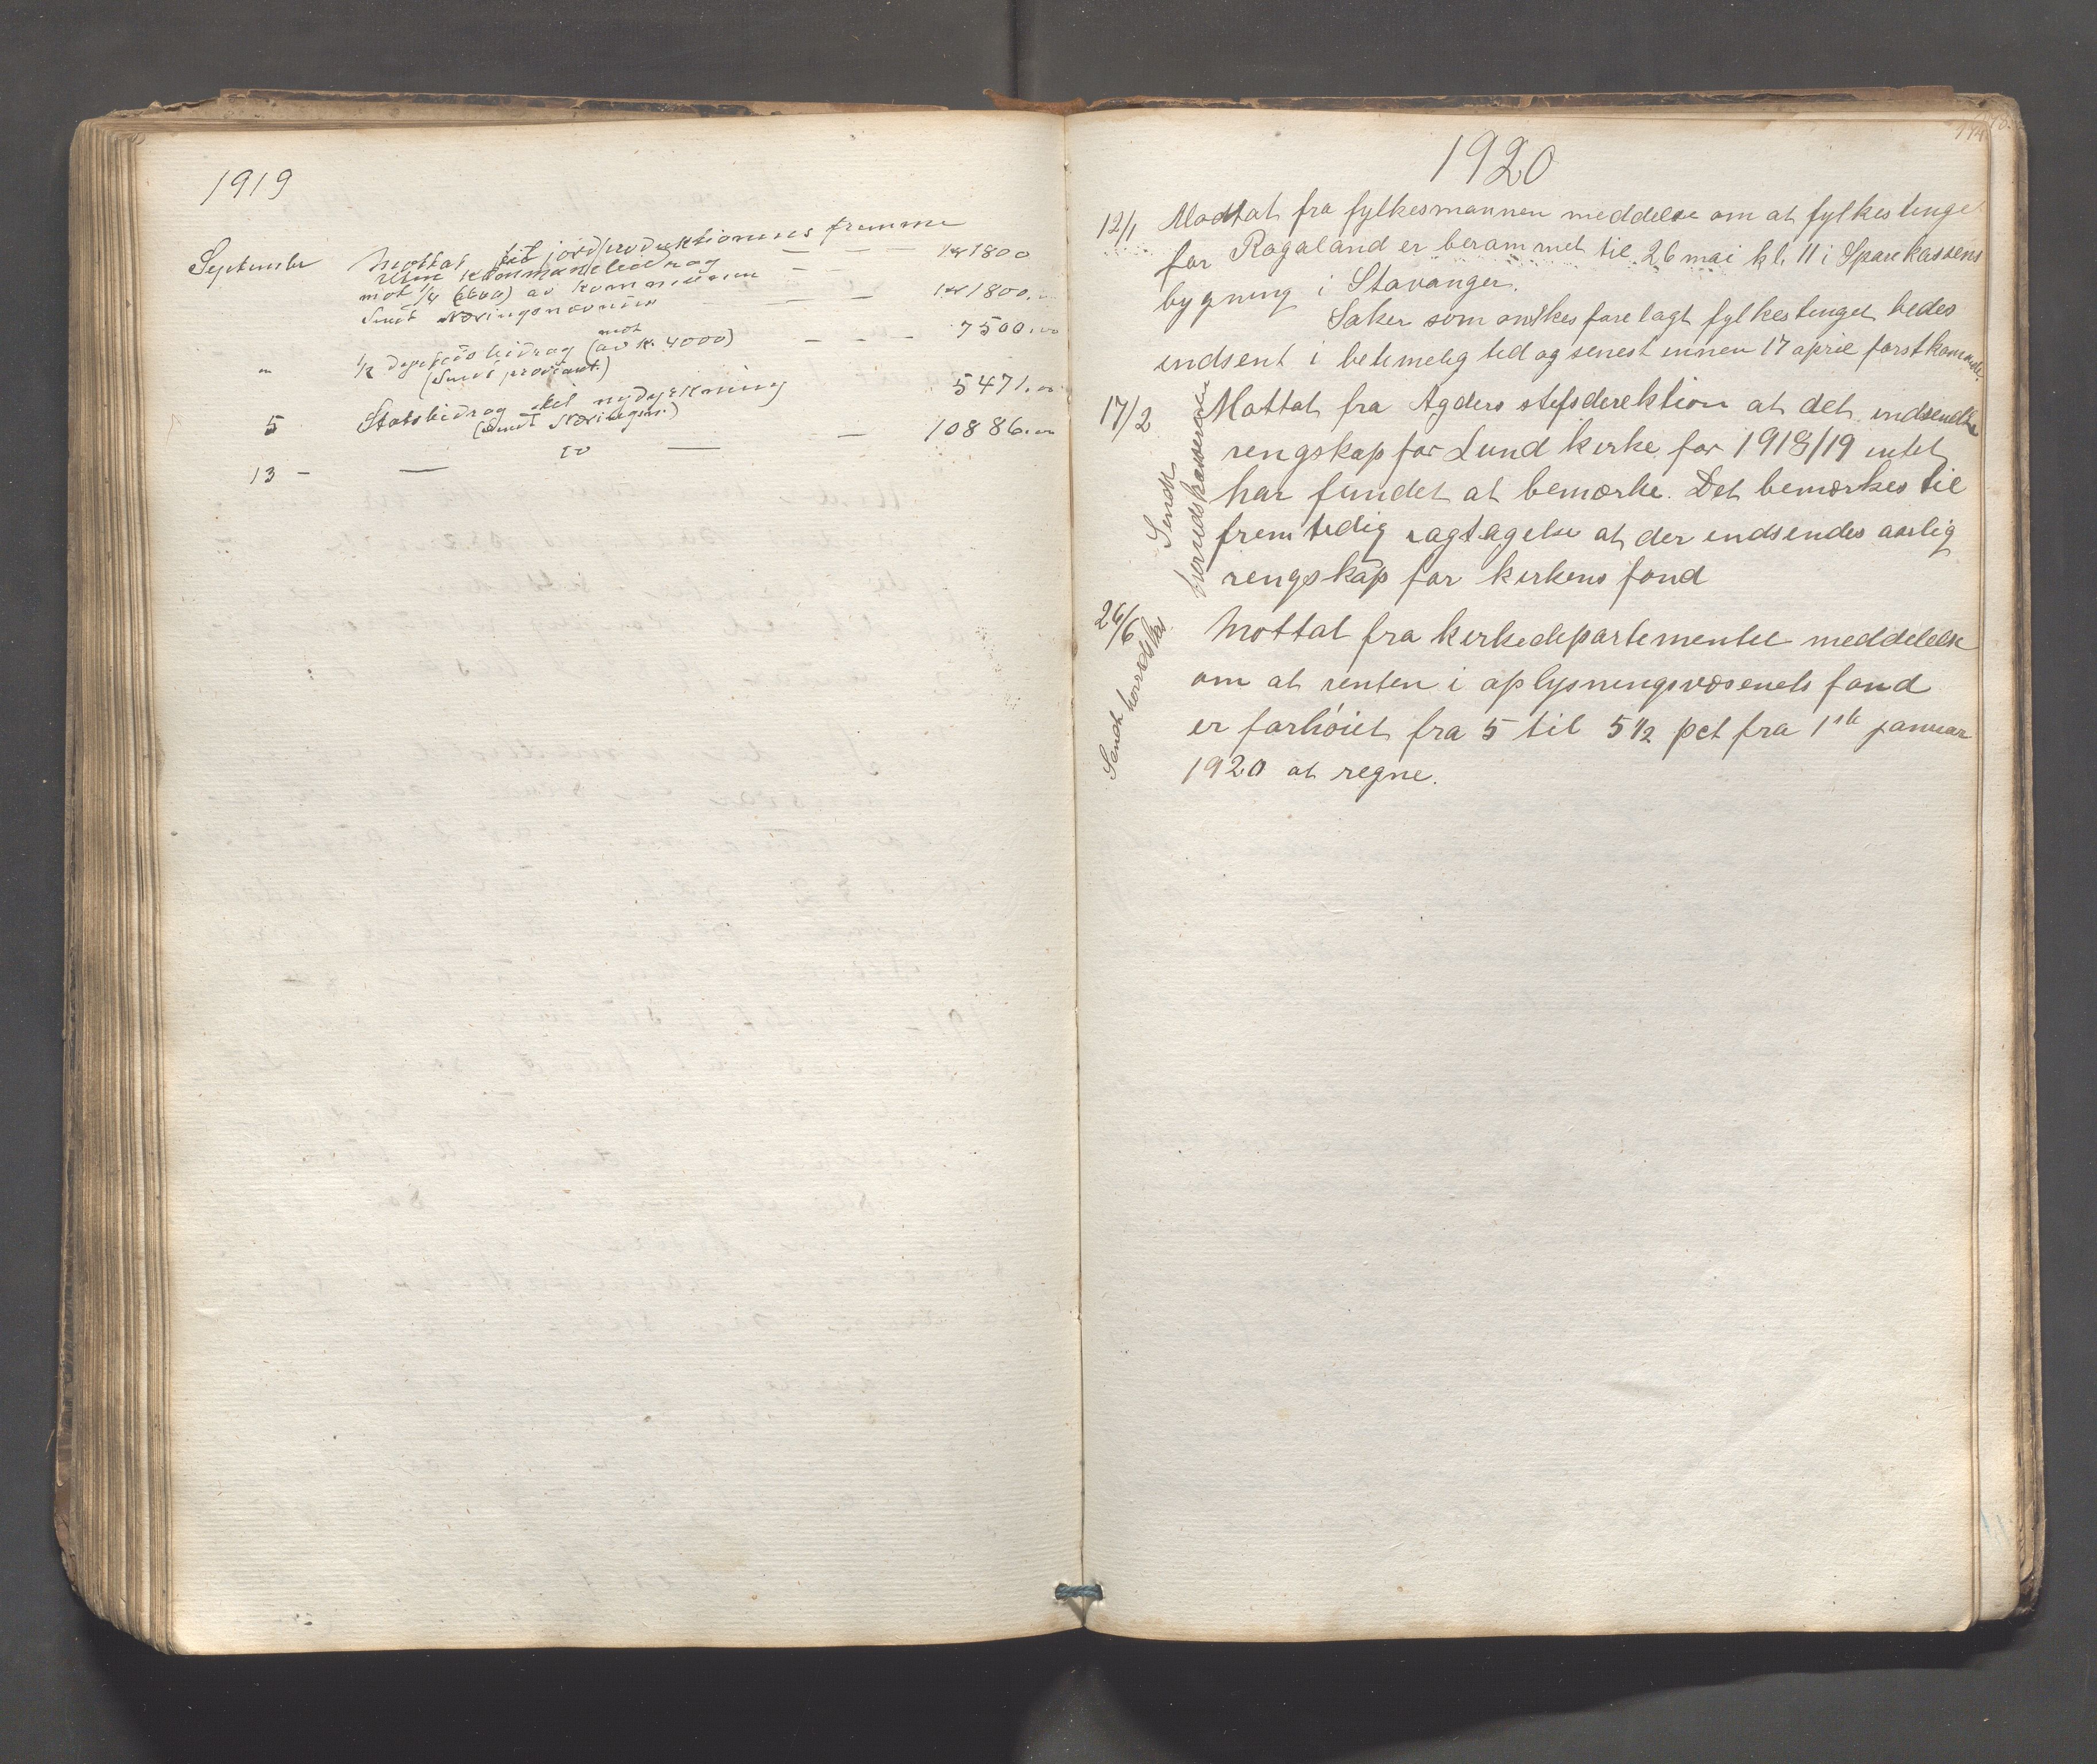 1919
September Mottat til jordproduktionens fremme
uten kommunebidrag — — — kr 1800
mot 1/4 av kommunen — —
Sendt Næringsnævnden — — — kr 1800.
" 1/2 bidrag (mot av kr. 4000) — — — 7500.00
(Sendt proviant.)
5 Statsbidrag til nydyrkning 5471.00
(Sendt Næringsn.)
13 — — do — — 10886.00
1920
12/1 Modtat fra fylkesmannen meddelse om at fylkestinge
for Rogaland er berammet til 26 mai kl. 11 i Sparekassens
bygning i Stavanger.
Saker som ønskes forelagt fylkestinget bedes
indsent i betimelig tid og senest innen 17 april førstkommende.
17/2 Mottat fra Agders stifsdirektion at det indsendte
rengskap for Lund kirke for 1918/19 intet
har fundet at bemærke. Det bemærkes til
fremtidig iagtagelse at der indsendes aarlig
rengskap for kirkens fond
Sendt
herredskasereren
26/6 Mottat fra kirkedepartementet meddelelse
om at renten i oplysningsvæsenets fond
er forhøiet fra 5 til 5 1/2 pct fra 1ste januar
1920 at regne.
Sendt herredskas